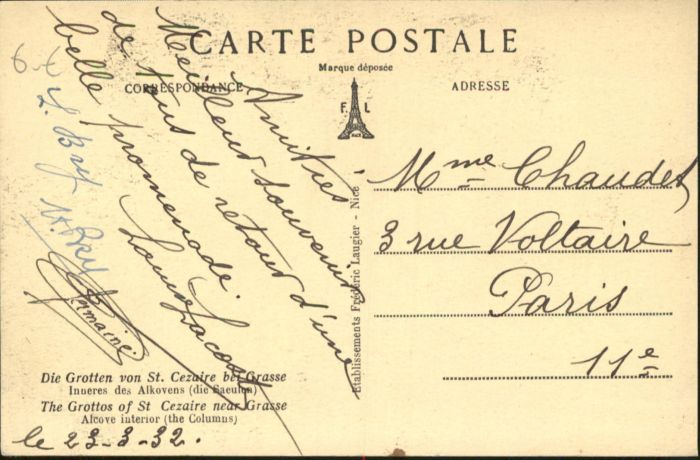 CARTE POSTALE
Marque déposée
CORRESPONDANCE
ADRESSE
F. L
Amitiés
Meilleur souvenir
de tous de retour d'une
belle promenade.
L. Bry
M. Bry
Germaine
Mme Chaudet
3 rue Voltaire
Paris
11e
Etablissements Frédéric Laugier - Nice
Die Grotten von St. Cezaire bei Grasse
Inneres des Alkovens (die Saeulen)
The Grottos of St Cezaire near Grasse
Alcove interior (the Columns)
le 23-3-32.